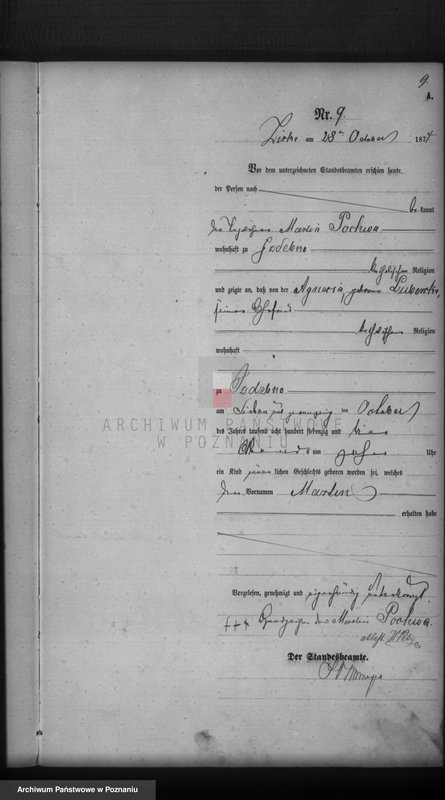 9.
4.
Nr. 9.
Zirke am 28ten October 1874
Vor dem unterzeichneten Standesbeamten erschien heute,
der Person nach
be kannt
der Martin Pochwa
wohnhaft zu
katholischer Religion
und zeigte an, daß von der geborene
seiner Ehefrau
katholischer Religion
wohnhaft
zu
am Sieben und zwanzig ten October
des Jahres tausend acht hundert siebenzig und vier
Abends um Uhr
ein Kind männ lichen Geschlechts geboren worden sei, welches
den Vornamen Martin
erhalten habe
Vorgelesen, genehmigt und
+++ Handzeichen des Martin Pochwa
Der Standesbeamte.
ARCHIWUM PAŃSTWOWE
W POZNANIU
Archiwum Państwowe w Poznaniu